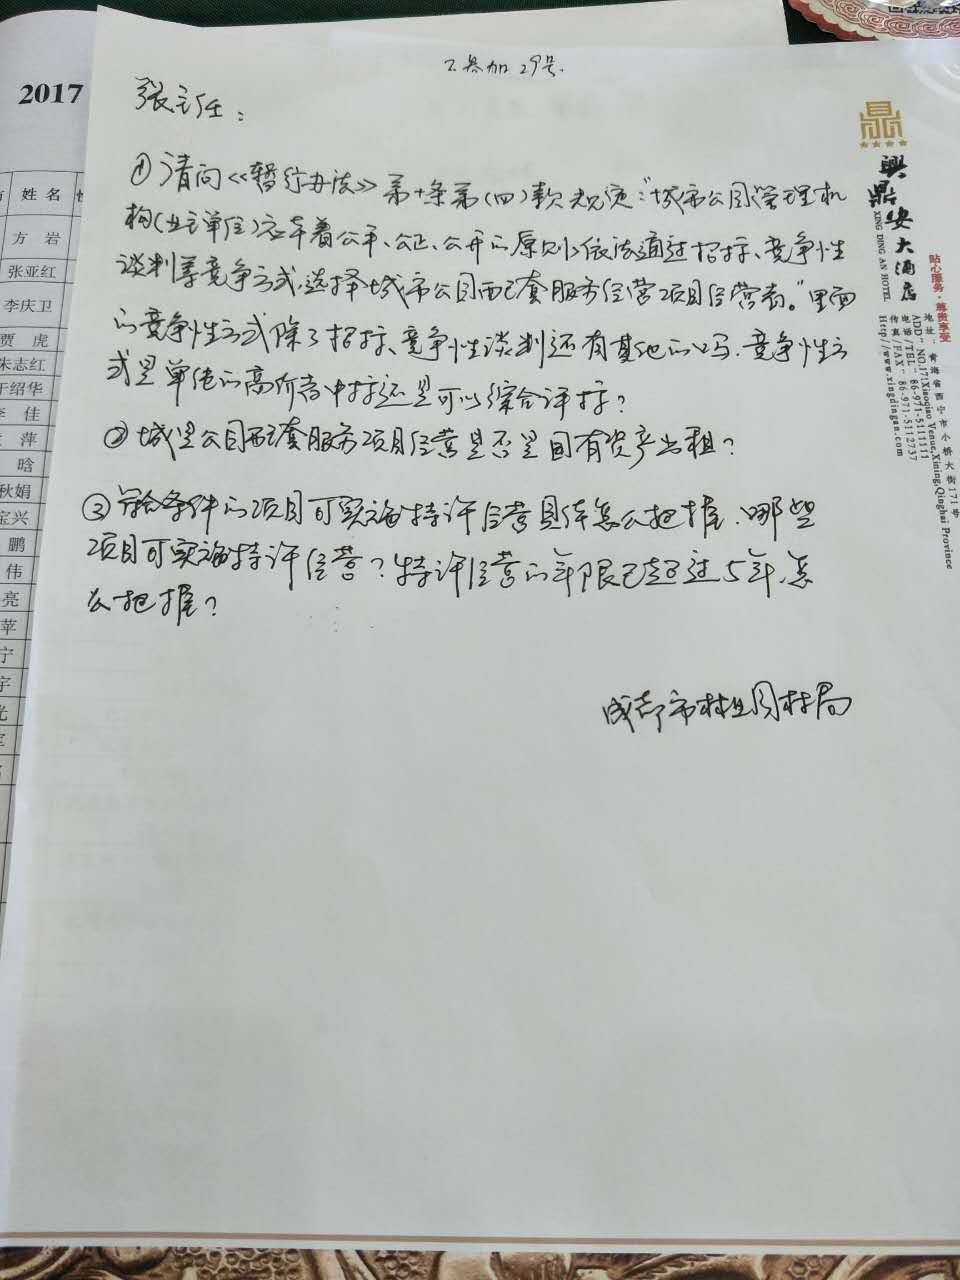 不参加29号.
2017
张主任：
①请问《暂行办法》第十条第(四)款规定:"城市公园管理机
构(业主单位)应本着公平、公正、公开的原则,依法通过招标、竞争性
谈判等竞争方式,选择城市公园配套服务经营项目经营者。"里面
的竞争性方式除了招标、竞争性谈判还有其他的吗.竞争性方
式是单纯的高价者中标还是可以综合评标?
②城市公园配套服务项目经营是否是国有资产出租?
③符合条件的项目可实施特许经营具体怎么把握.哪些
项目可实施特许经营?特许经营的年限已超过5年,怎
么把握?
成都市林业园林局
姓 名
方 岩
张亚红
李庆卫
贾 虎
朱志红
于绍华
李 佳
萍
晗
秋娟
宝兴
鹏
伟
亮
苹
宁
宇
光
鼎
興鼎安大酒店
XING DING AN HOTEL
贴心服务·尊贵享受
地址：青海省西宁市小桥大街171号
ADD - NO.171Xiaoqiao Venue,Xining,Qinghai Province
电话/TEL - 86-971-5111111
传真/FAX - 86-971-5112737
Http//www.xingdingan.com